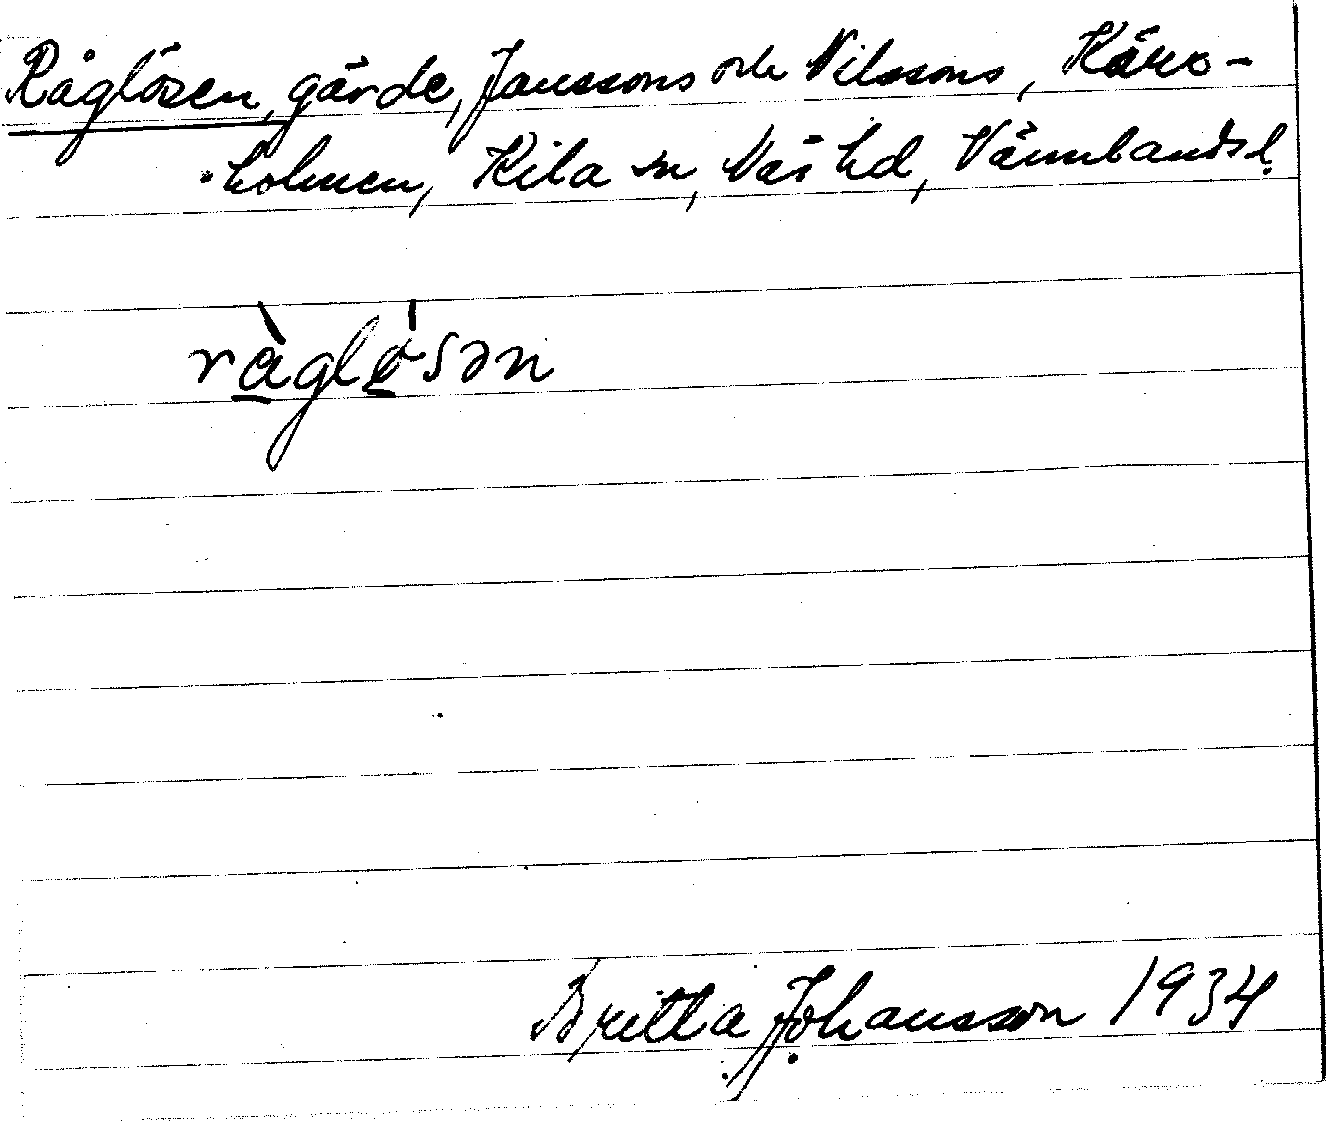 Råglösen, gärde, Janssons och Nilssons, Käxo-
holmen, Kila sn, Näs hd, Värmlands l.
ràgløsən
Britta Johansson 1934